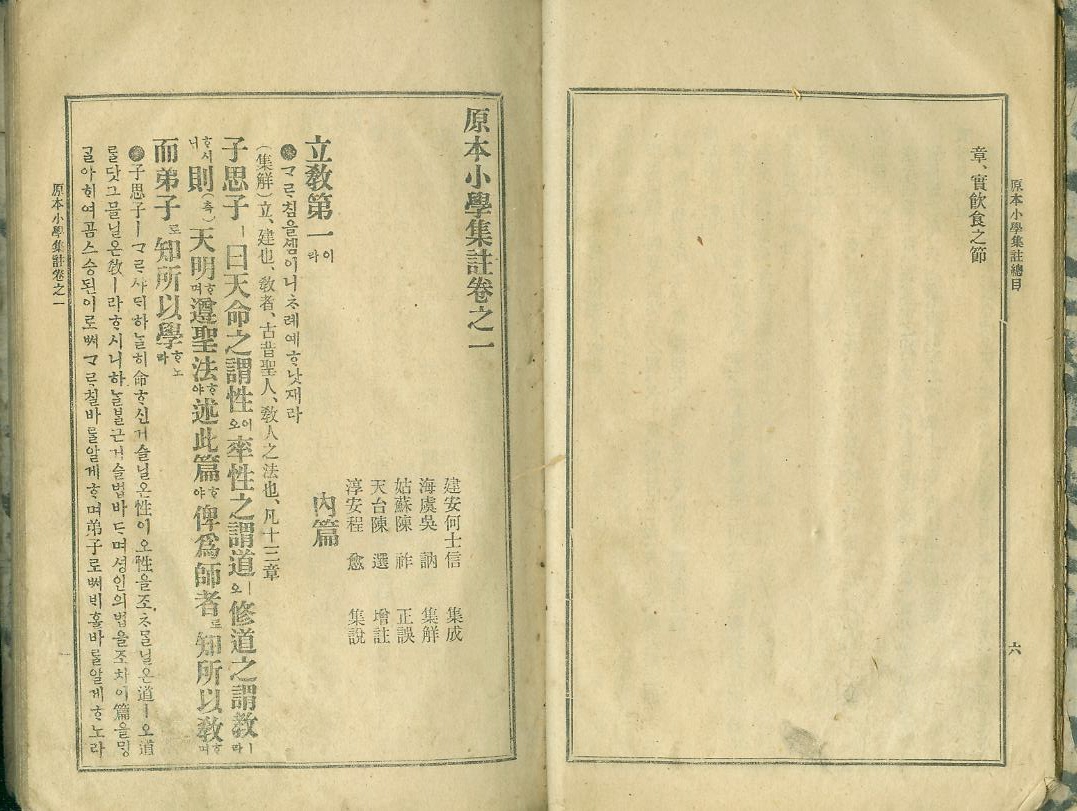 原本小學集註總目
章、實飮食之節
六
原本小學集註卷之一
建安何士信 集成
海虞吳 訥 集解
姑蘇陳 祚 正誤
天台陳 選 增註
淳安程 愈 集說
內篇
立敎第一이라
ᄀᆞᄅᆞ침을셈이니ᄎᆞ례예ᄒᆞ낫재라
(集解)立、建也、敎者、古昔聖人、敎人之法也、凡十三章
子思子ㅣ曰天命之謂性이오率性之謂道ㅣ오修道之謂敎ㅣ라
ᄒᆞ시니則(측)天明ᄒᆞ며遵聖法ᄒᆞ야述此篇ᄒᆞ야俾爲師者로知所以敎ᄒᆞ며
而弟子로知所以學ᄒᆞ노라
子思子ㅣᄀᆞᄅᆞ샤ᄃᆡ하ᄂᆞᆯ히命ᄒᆞ신거슬닐온性이오性을조ᄎᆞᄆᆞᆯ닐온道ㅣ오道
ᄅᆞᆯ닷그믈닐온敎ㅣ라ᄒᆞ시니하ᄂᆞᆯᄇᆞᆯ근거슬법바ᄃᆞ며셩인의법을조차이篇을ᄆᆡᆼ
ᄀᆞᆯ아ᄒᆡ여곰스승된이로ᄡᅥᄀᆞᄅᆞ칠바ᄅᆞᆯ알게ᄒᆞ며弟子로ᄡᅥᄇᆡ홀바ᄅᆞᆯ알게ᄒᆞ노라
原本小學集註卷之一